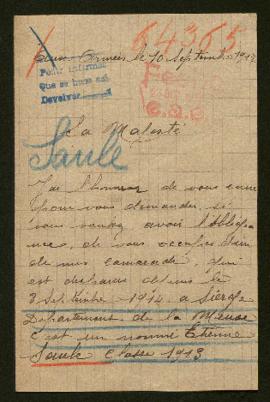 54365
Aux Armées le 10 Septembre 1917
Pedir informes
Que se hace así
Devolver
Sa Majesté
Saule
J'ai l'honneur de vous
pour vous demander si
vous voulez avoir l'obligea
nce, de vous occuper d'un
de mes camarade, qui
est disparu depuis le
3 Septembre 1914 a
Departement de la Meuse
C'est un nommé Etienne
Saule Classe 1913